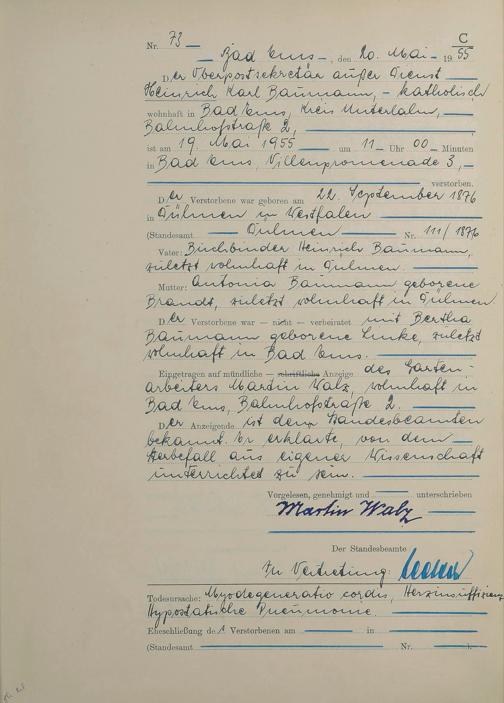 C
Nr. 73
Bad Ems, den 20. Mai 1955
Der Oberpostsekretär außer Dienst
Heinrich Karl Baumann, - katholisch
wohnhaft in Bad Ems, Kreis Unterlahn,
Bahnhofstraße 2,
ist am 19. Mai 1955 um 11 Uhr 00 Minuten
in Bad Ems, Villenpromenade 3,
verstorben.
Der Verstorbene war geboren am 22. September 1876
in Dülmen in Westfalen
(Standesamt Dülmen Nr. 111/1876
Vater: Buchbinder Heinrich Baumann,
zuletzt wohnhaft in Dülmen.
Mutter: Antonia Baumann geborene
Brandt, zuletzt wohnhaft in Dülmen.
Der Verstorbene war — nicht — verheiratet mit Bertha
Baumann geborene Linke, zuletzt
wohnhaft in Bad Ems.
Eingetragen auf mündliche — schriftliche Anzeige des Garten-
arbeiters Martin Walz, wohnhaft in
Bad Ems, Bahnhofstraße 2.
Der Anzeigende ist dem Standesbeamten
bekannt. Er erklärte, von dem
Sterbefall aus eigener Wissenschaft
unterrichtet zu sein.
Vorgelesen, genehmigt und unterschrieben
Martin Walz
Der Standesbeamte
In Vertretung:
Todesursache: Myodegeneratio cordis, Herzinsuffizienz
Hypostatische Pneumonie
Eheschließung de Verstorbenen am in
(Standesamt Nr. ).